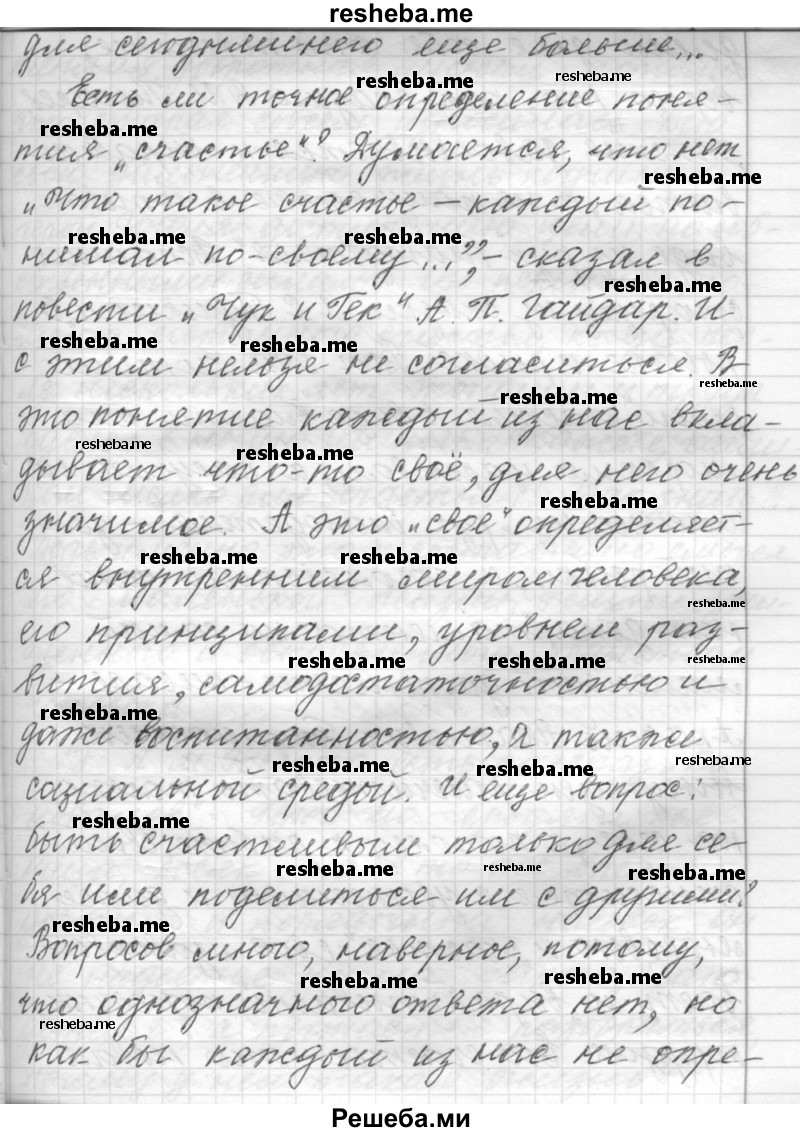 resheba.me
для сегодняшнего еще больше...
Есть ли точное определение поня-
тия „счастье"? Думается, что нет
„Что такое счастье – каждый по-
нимал по-своему...", – сказал в
повести „Чук и Гек" А. П. Гайдар. И
с этим нельзя не согласиться. В
это понятие каждый из нас вкла-
дывает что-то своё, для него очень
значимое. А это „свое" определяет-
ся внутренним миром человека,
его принципами, уровнем раз-
вития, самодостаточностью и
даже воспитанностью, а также
социальной средой. И еще вопрос:
быть счастливым только для се-
бя или поделиться им с другими?
Вопросов много, наверное, потому,
что однозначного ответа нет, но
как бы каждый из нас не опре-
Решеба.ми